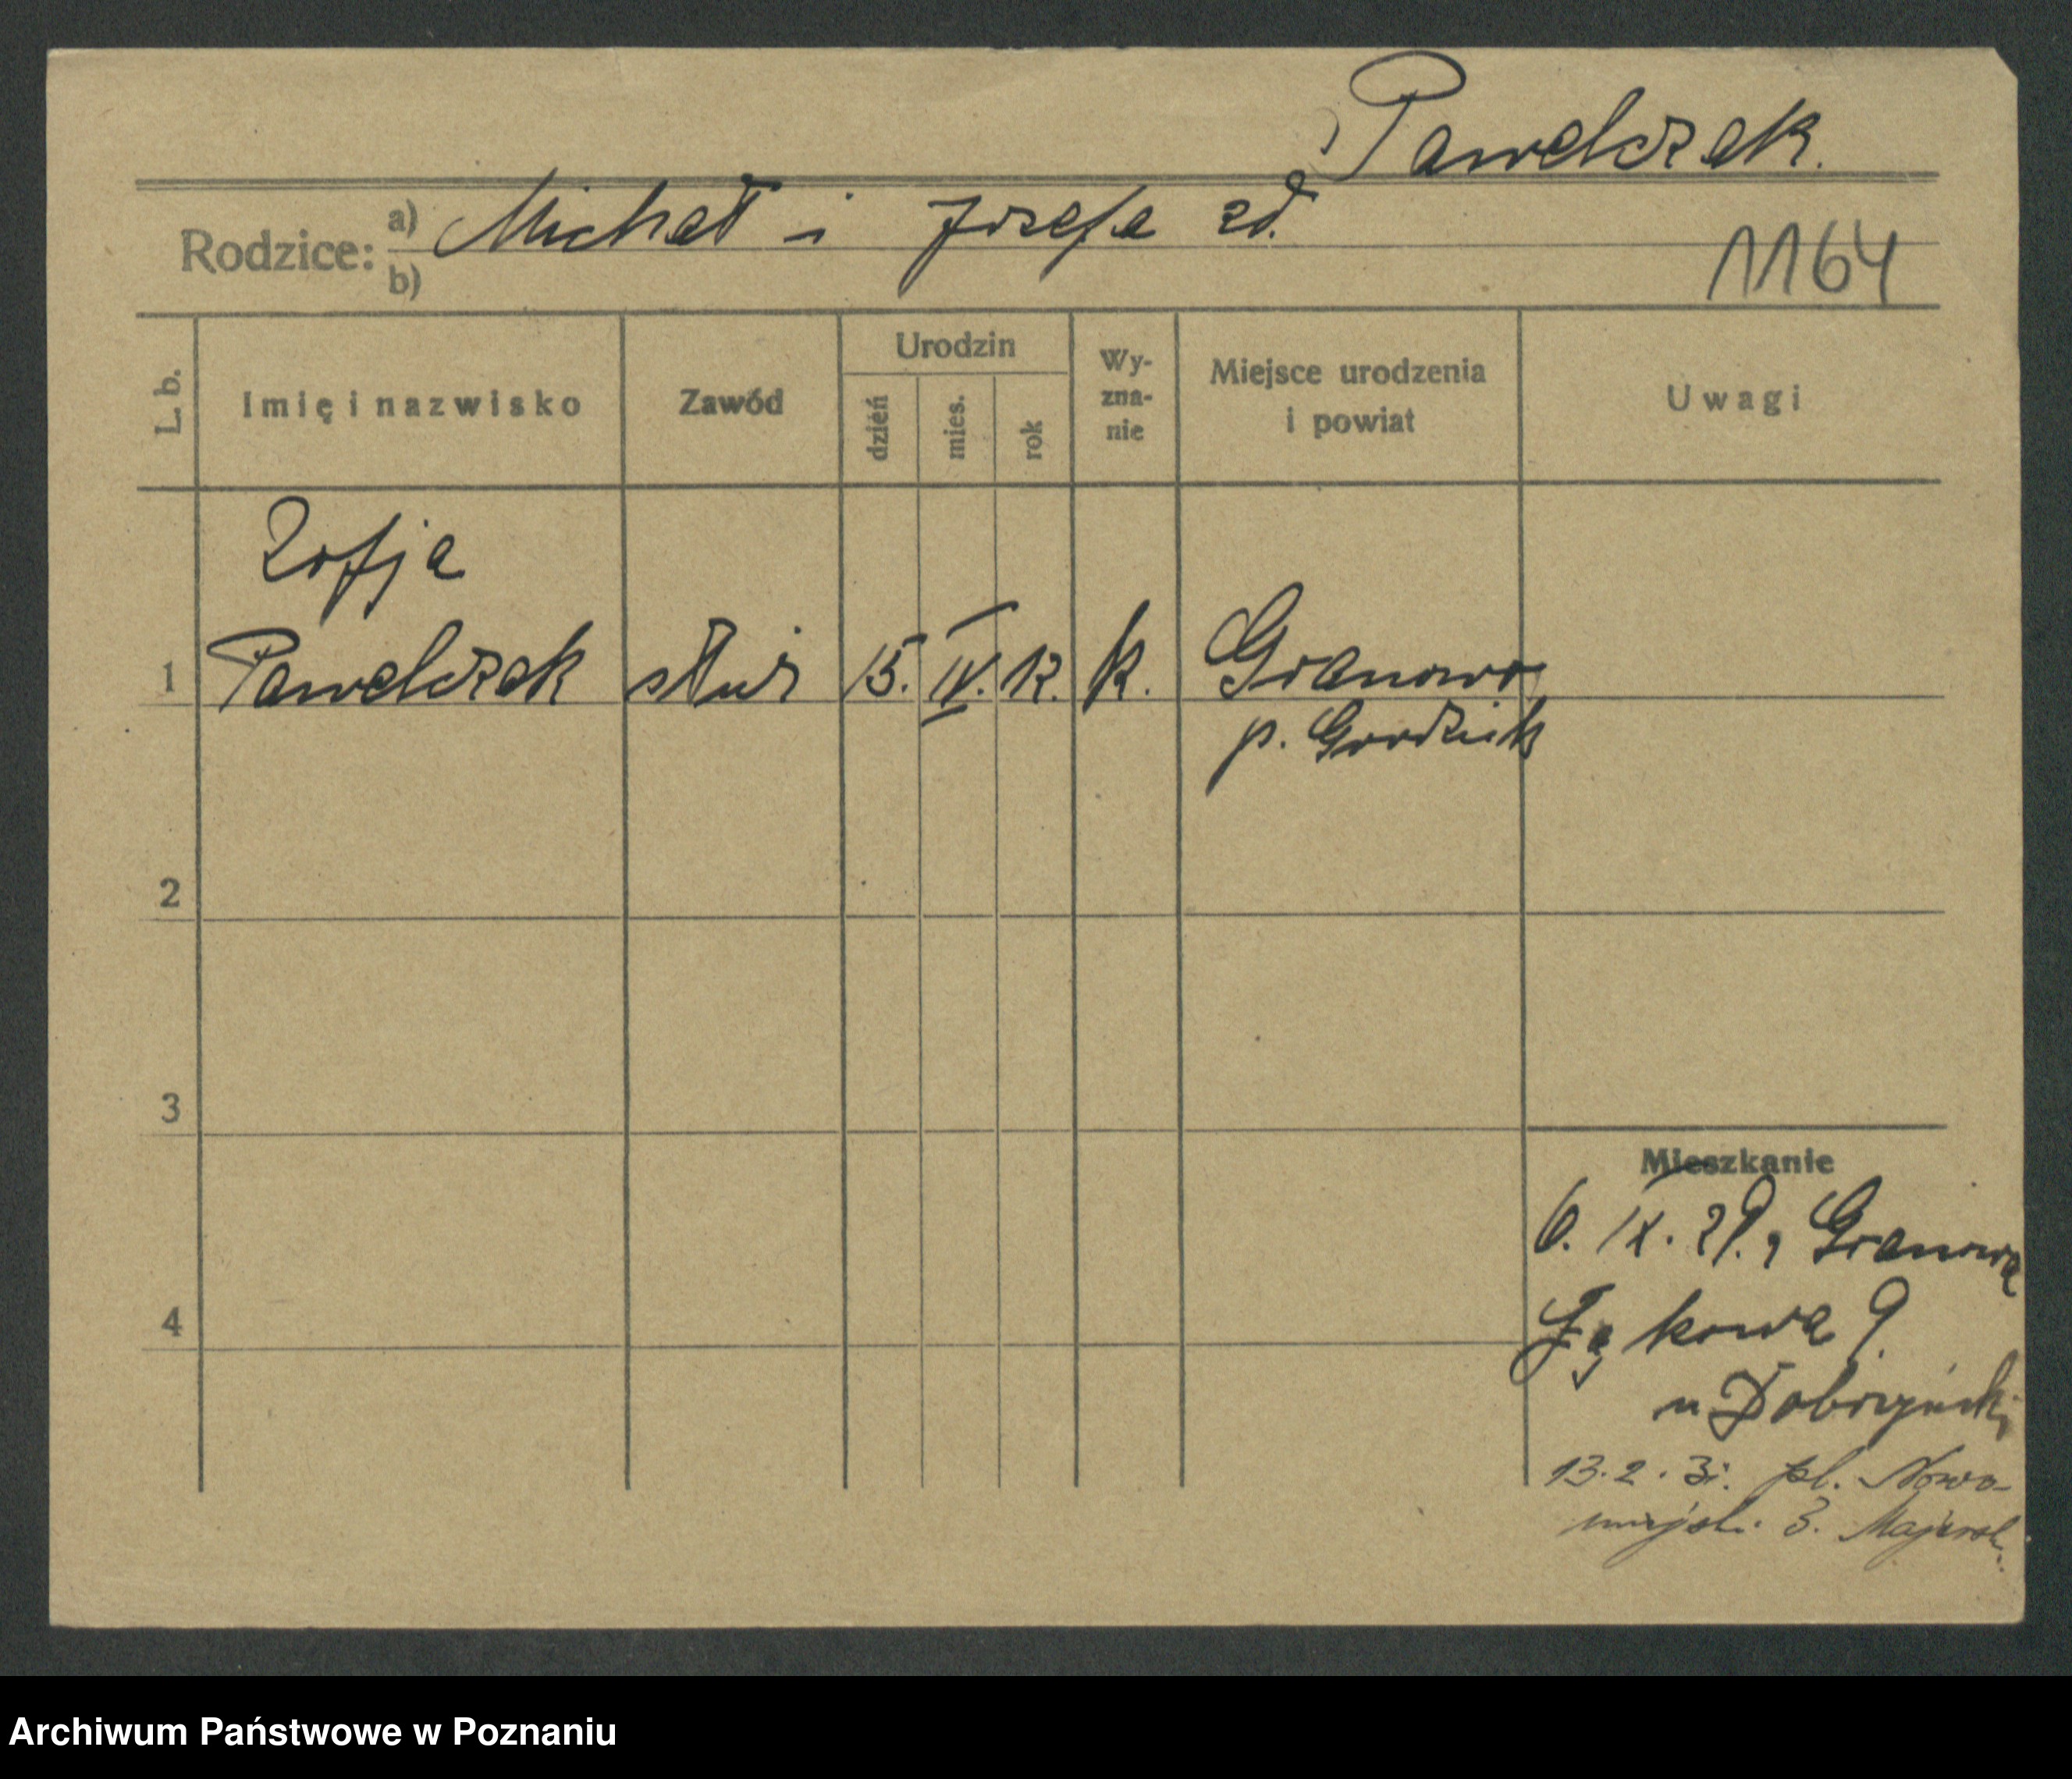 Pawelczak.
Rodzice: a) Michał i Józefa zd.
b)
1164
L. b.
Imię i nazwisko
Zawód
Urodzin
dzień
mies.
rok
Wy-
zna-
nie
Miejsce urodzenia
i powiat
Uwagi
Zofja
1 Pawelczak służ 15. IV. 12. k. Granowo
p. Grodzisk
2
3
4
Mieszkanie
6. IX. 29. z Granowa
Łąkowa 9.
u Dobrzyński
13.2.31. pl. Nowo-
miejski 3. Majersk.
Archiwum Państwowe w Poznaniu